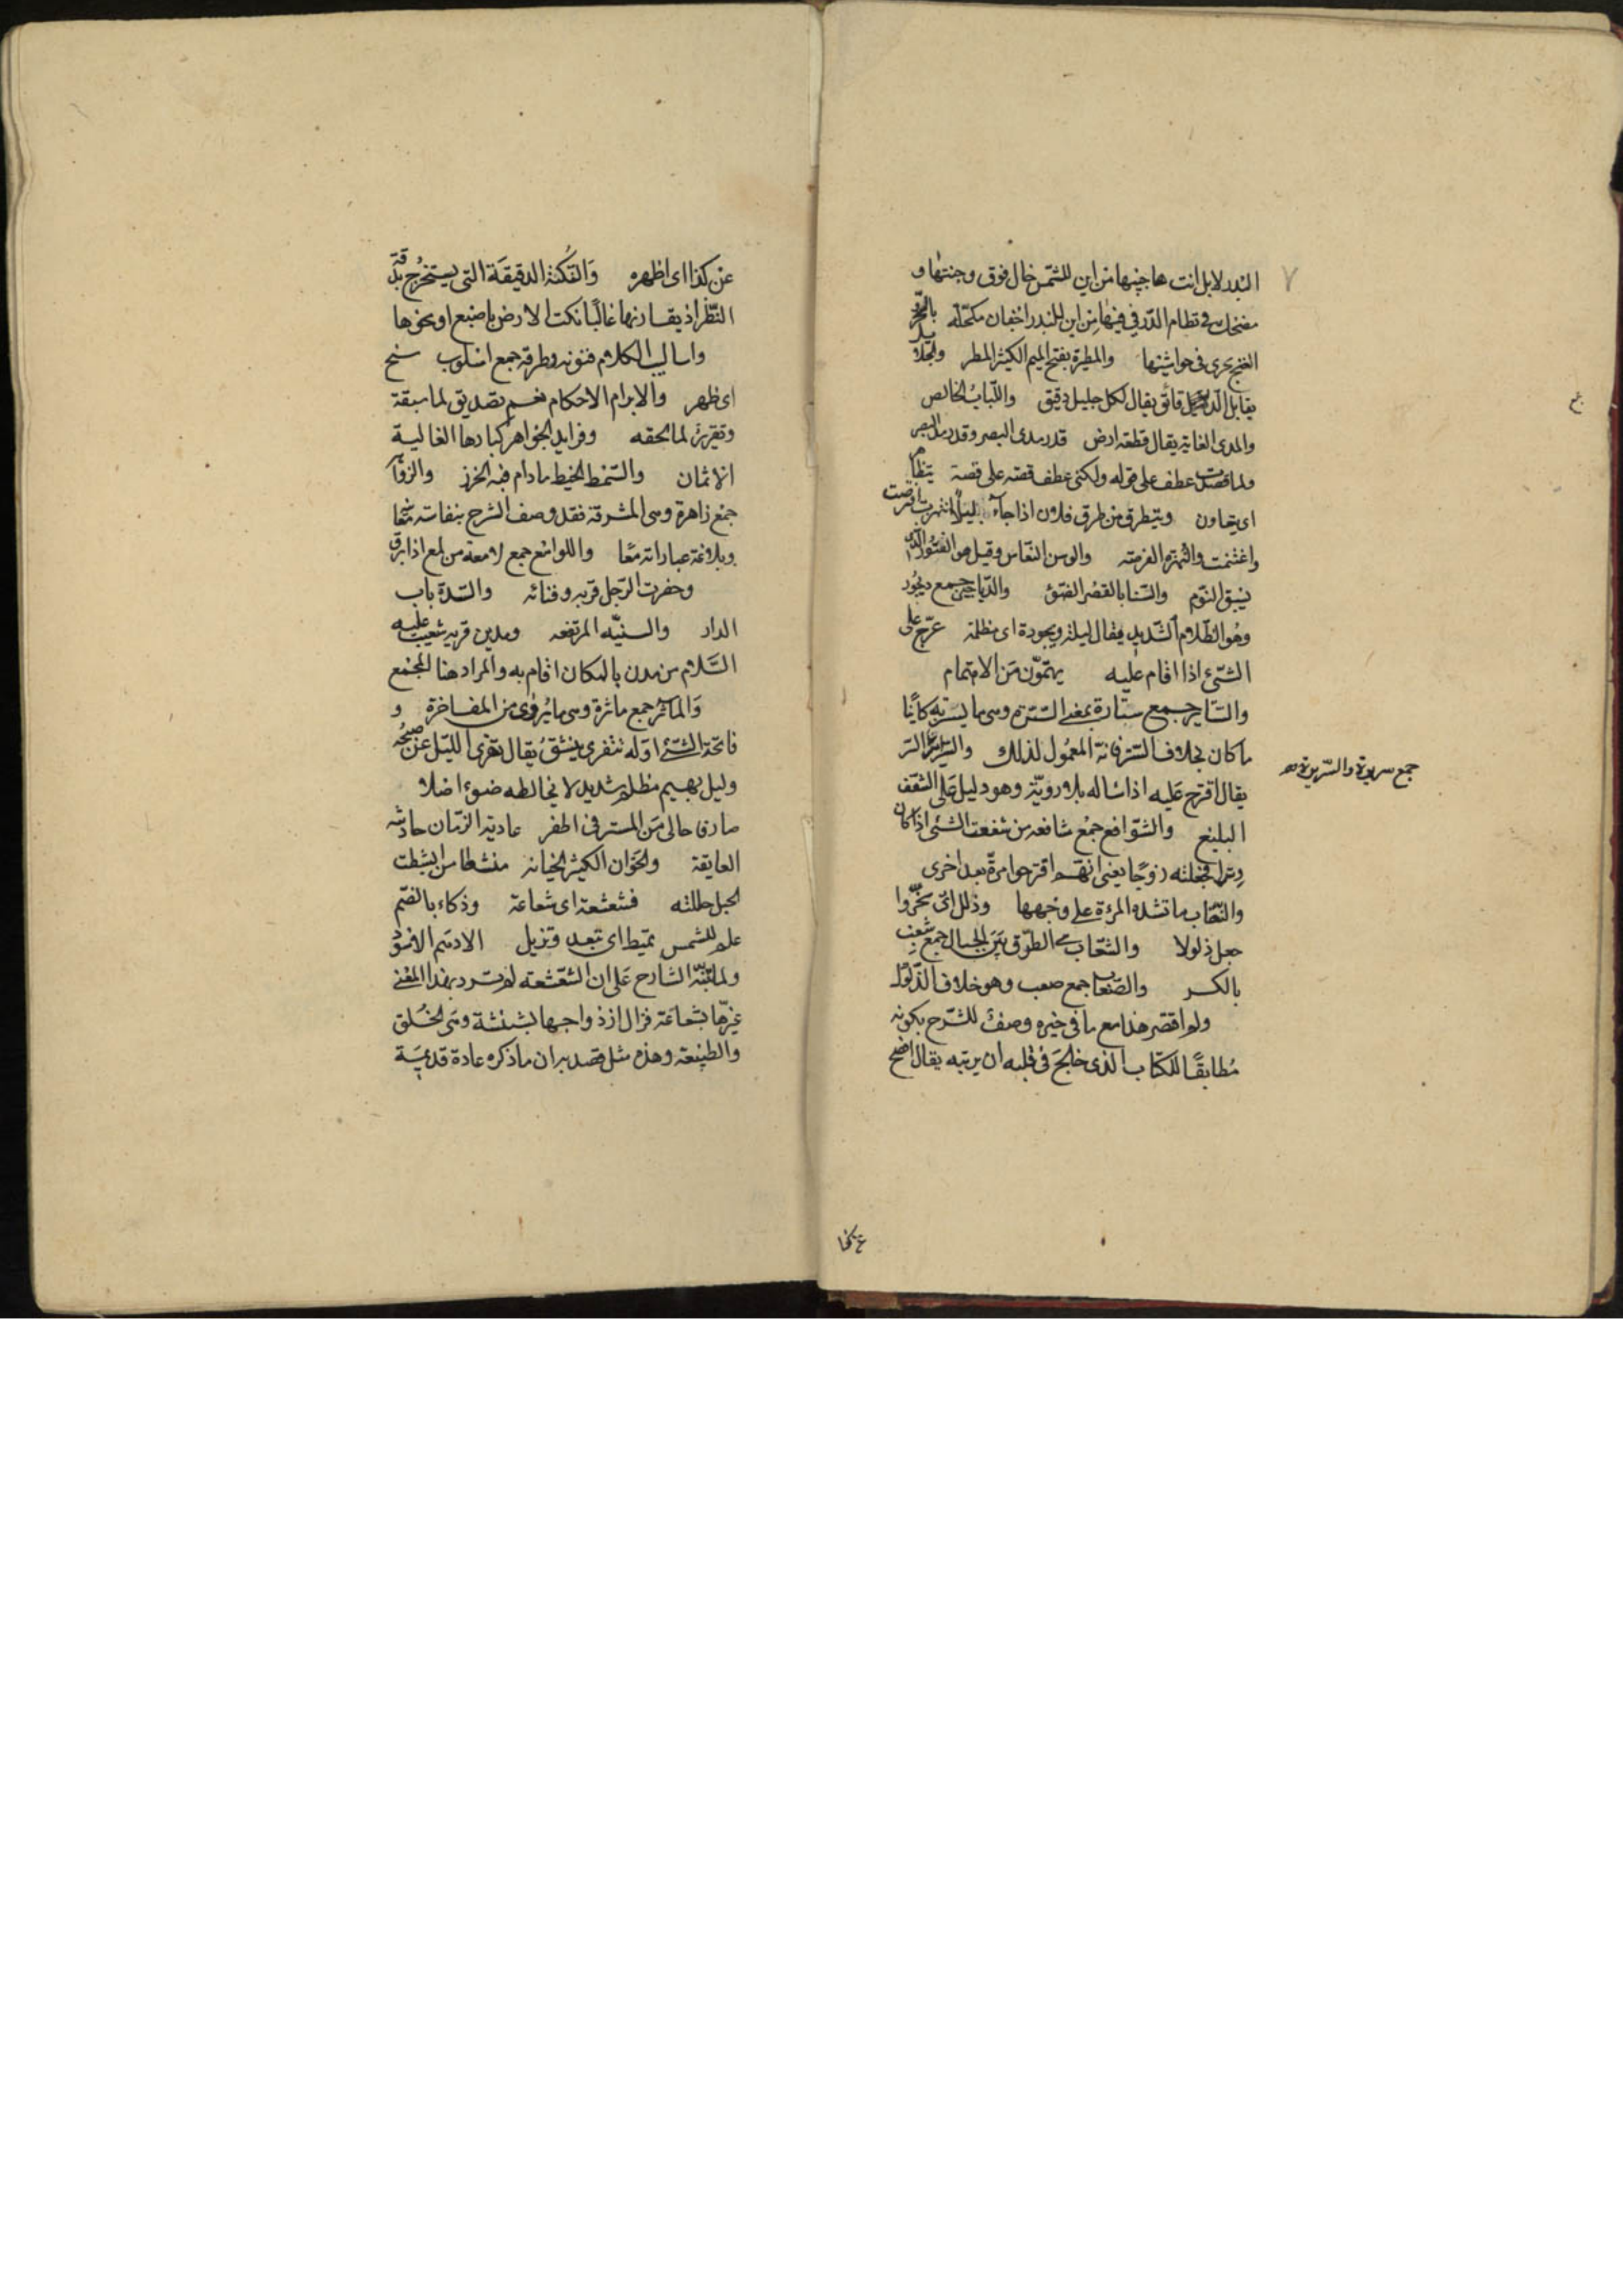 البدر لا بل انت هاجيها من اين للشمس خال فوق وجنتها و
مضحك في نظام الدر في فيها من اين للبدر اجفان مكحلة بالسحر
الغنج يجري في حواشيها والمطيرة بفتح الميم الكثير المطر والجلا
يقابل الدقيق يقال لكل جليل دقيق واللباب الخالص
والمدى الغاية يقال قطعة ارض قدر مدى البصر وقدر مد البصر
ولما قصت عطف على قوله ولكني عطف قصة على قصة
اى يتعاون ويتطرق من طرق فلان اذا جاء ليلا انتهزت افترصت
واغتنمت والنهزة الفرصة والوسن النعاس وقيل هو الفتور الذى
يسبق النوم والسنا بالقصر الضوء والدياجير جمع ديجور
وهو الظلام الشديد يقال ليلة ديجورة اى مظلمة عرج على
الشئ اذا اقام عليه يهتمون من الاهتمام
والستاير جمع ستارة بمعنى السترة وهي ما يستر به كائنا
ما كان بخلاف الستر فانه المعمول لذلك والسراير السر
جمع سريرة والسريرة
يقال اقترح عليه اذا ساله بلا روية وهو دليل على الشغف
البليغ والشوافع جمع شافعة من شفعت الشئ اذا كان
وترا فجعلته زوجا يعنى انهم اقترحوا مرة بعد اخرى
والنقاب ما تشده المرءة على وجهها وذلل اى سخروا
جعل ذلولا والشعاب هى الطرق بين الجبال جمع شعب
بالكسر والصعاب جمع صعب وهو خلاف الذلول
ولم اقتصر هذا مع ما فى خيره وصف للشرح بكونه
مطابقا للكتاب الذى خالج فى قلبه ان يرتبه يقال افصح
عن كذا اى اظهره والنكتة الدقيقة التى يستخرج بدقة
النظر اذ يقارنها غالبا نكت الارض باصبع او نحوها
واساليب الكلام فنونه وطرقه جمع اسلوب سنح
اى ظهر والابرام الاحكام نعم تصديق لما سبقه
وتقرير لما لحقه وفرايد الجواهر كبارها الغالية
الاثمان والسمط الخيط ما دام فيه الخرز والزواهر
جمع زاهرة وهى المشرقة فقد وصف الشرح بنفاسة
وبلاغة عباراته معا واللوامع جمع لامعة من لمع اذا برق
وحضرت الرجل قربه وفنائه والسدة باب
الدار والسنية المرتفعة ومدين قرية شعيب عليه
السلام من مدن بالمكان اقام به والمراد هنا المجمع
والمآثر جمع ماثرة وهى ما يروى من المفاخرة و
فاتحة الشئ اوله تتفرى ينشق يقال تفرى الليل عن صبحه
وليل بهيم مظلم شديد لا يخالطه ضوء اصلا
عادية الزمان حادثه
العايقة والخوان الكثير الخيانة منشطا من انشطت
الحبل حللته فشعشعة اى شعاعة وذكاء بالضم
علم للشمس تميط اى تبعد وتزيل الاديم الاسود
ولما تنبه الشارح على ان الشعشعة لم ترد بهذا المعنى
غيرها بشعاعة فزال ازدواجها بشنشنة وهى الخلق
والطبيعة وهذه مثل قصد به ان ما ذكره عادة قديمة